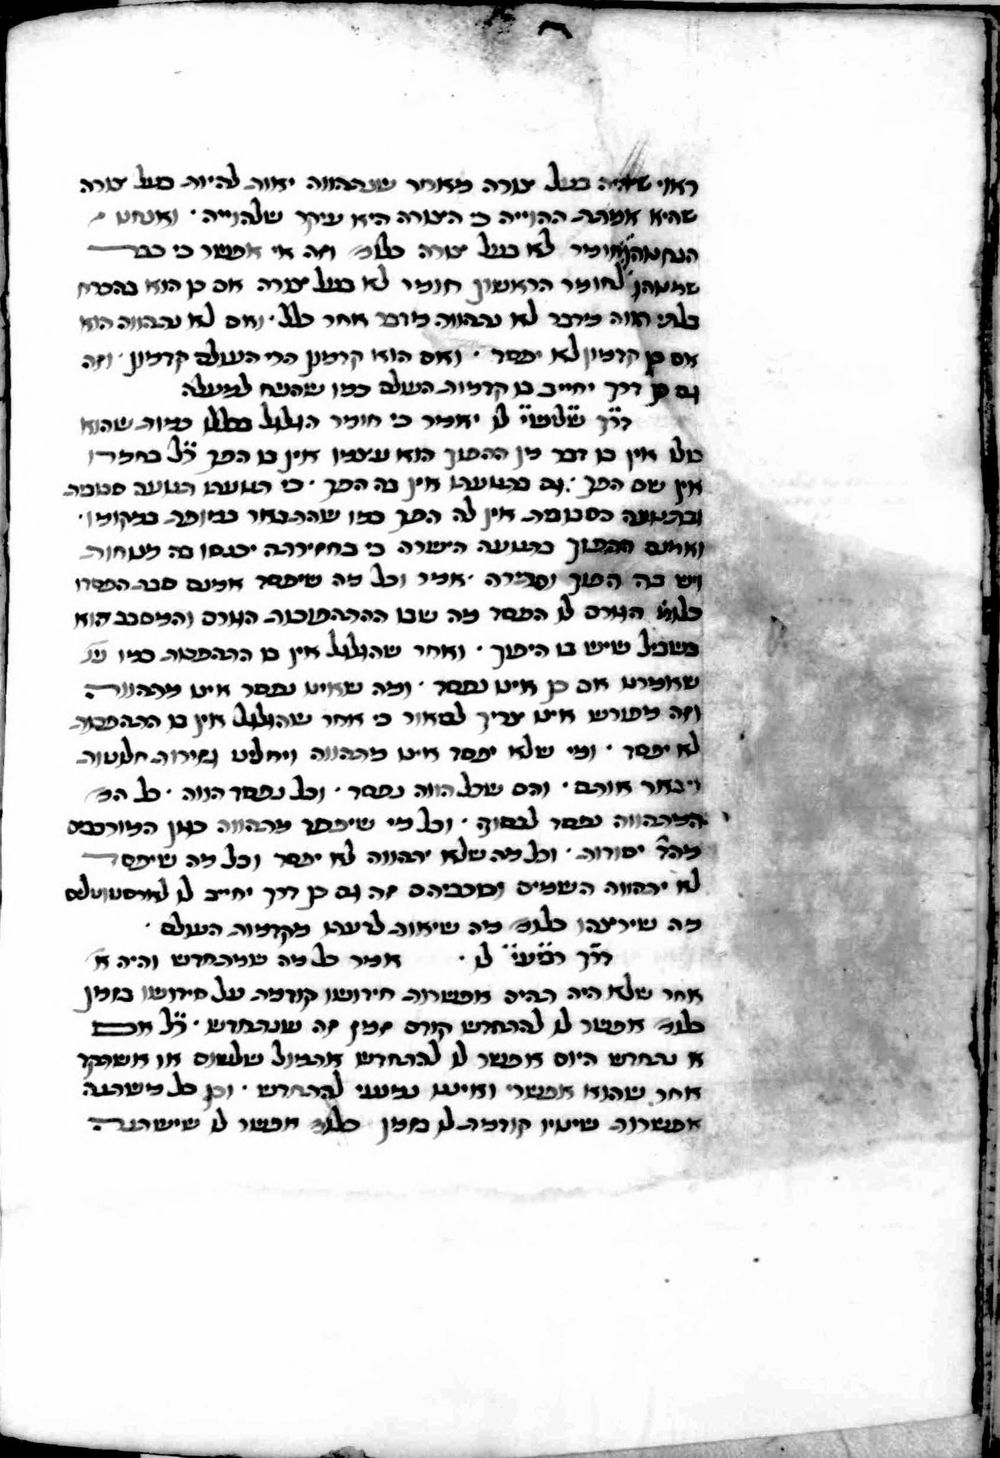 ראוי שיהיה בעל צורה מאחר שנתהווה יאות להיות בעל צורה
שהיא אמתת ההוייה כי הצורה היא עיקר שלהוייה · ואנחנו
הנחנוהו חומר לא בעל צורה כלומ׳ וזה אי אפשר כי כבר
שמנוהו לחומר הראשון חומר לא בעל צורה אם כן הוא בהכרח
בלתי הווה מדבר לא נתהווה מדבר אחר כלל · ואם לא נתהווה הוא
אם כן קדמון לא יפסד · ואם הוא קדמון הרי העולם קדמון · וזה
גם כן דרך יחייב בו קדמות העולם כמו שהונח למעלה
דרך שלישי לו יאמר כי חומר הגלגל בכללו כמות שהוא
כולו אין בו דבר מן ההפוך הוא עצמו אין בו הפך ר״ל בחמרו
אין שם הפך · גם בתנועתו אין בה הפך · כי תנועתו תנועה סבובית
ובתנועה הסבובית אין לה הפך כמו שהתבאר במופת במקומו ·
ואמנם ההפוך בתנועה הישרה כי בחזירתה יכנסו בה מנוחות
ויש בה הפוך ופרידה · אמר וכל מה שיפסד אמנם סבת הפסדו
כלומ׳ הגורם לו הפסד מה שבו ההתהפוכות הגורם והמסבב הוא
בשביל שיש בו היפוך · ואחר שהגלגל אין בו התהפכות כמו
שאמרנו אם כן אינו נפסד · ומה שאינו נפסד אינו מתהווה
וזה מפורש אינו צריך לבאור כי אחר שהגלגל אין בו התהפכות
לא יפסד · ומי שלא יפסד אינו מתהווה ויחליט גזירות חלוטות
ויבאר אותם · והם שכל הווה נפסד · וכל נפסד הווה · כל המ׳
המתהווה נפסד לבסוף · וכל מי שיפסד מתהווה כאן המורכבים
מהד׳ יסודות · וכל מה שלא יתהווה לא יפסד וכל מה שיפסד
לא יתהווה השמים וכוכביהם זה גם כן דרך יחייב לו לארסטוטלס
מה שירצהו כלומ׳ מה שיאות לדעתו מקדמות העולם ·
דרך רביעי לו · אמר כל מה שמתחדש והיה א
אחר שלא היה תהיה אפשרות חידושו קודמת על חידושו בזמן
כלומ׳ אפשר לו להתחדש קודם זמן זה שנתחדש · ר״ל אם
א נתחדש היום אפשר לו להתחדש אתמול שלשום או אשתקד
אחר שהוא אפשרי ואינו נמנע להתחדש · וכן כל משתנה
אפשרות שינויו קודמת לו בזמן כלומ׳ אפשר לו שישתנה